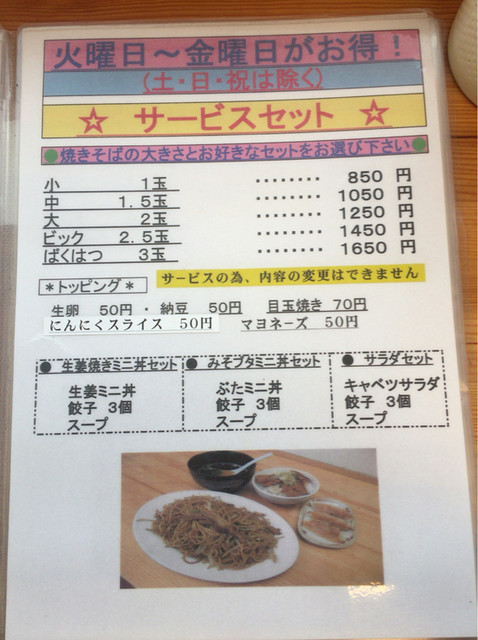 火曜日～金曜日がお得！
（土・日・祝は除く）
☆ サービスセット ☆
●焼きそばの大きさとお好きなセットをお選び下さい●
小 1玉 ‥‥‥‥ 850 円
中 1.5玉 ‥‥‥‥ 1050 円
大 2玉 ‥‥‥‥ 1250 円
ビック 2.5玉 ‥‥‥‥ 1450 円
ばくはつ 3玉 ‥‥‥‥ 1650 円
＊トッピング＊ サービスの為、内容の変更はできません
生卵 50円 ・ 納豆 50円 目玉焼き 70円
にんにくスライス 50円 マヨネーズ 50円
● 生姜焼きミニ丼セット ● みそブタミニ丼セット ● サラダセット
生姜ミニ丼 ぶたミニ丼 キャベツサラダ
餃子 3個 餃子 3個 餃子 3個
スープ スープ スープ